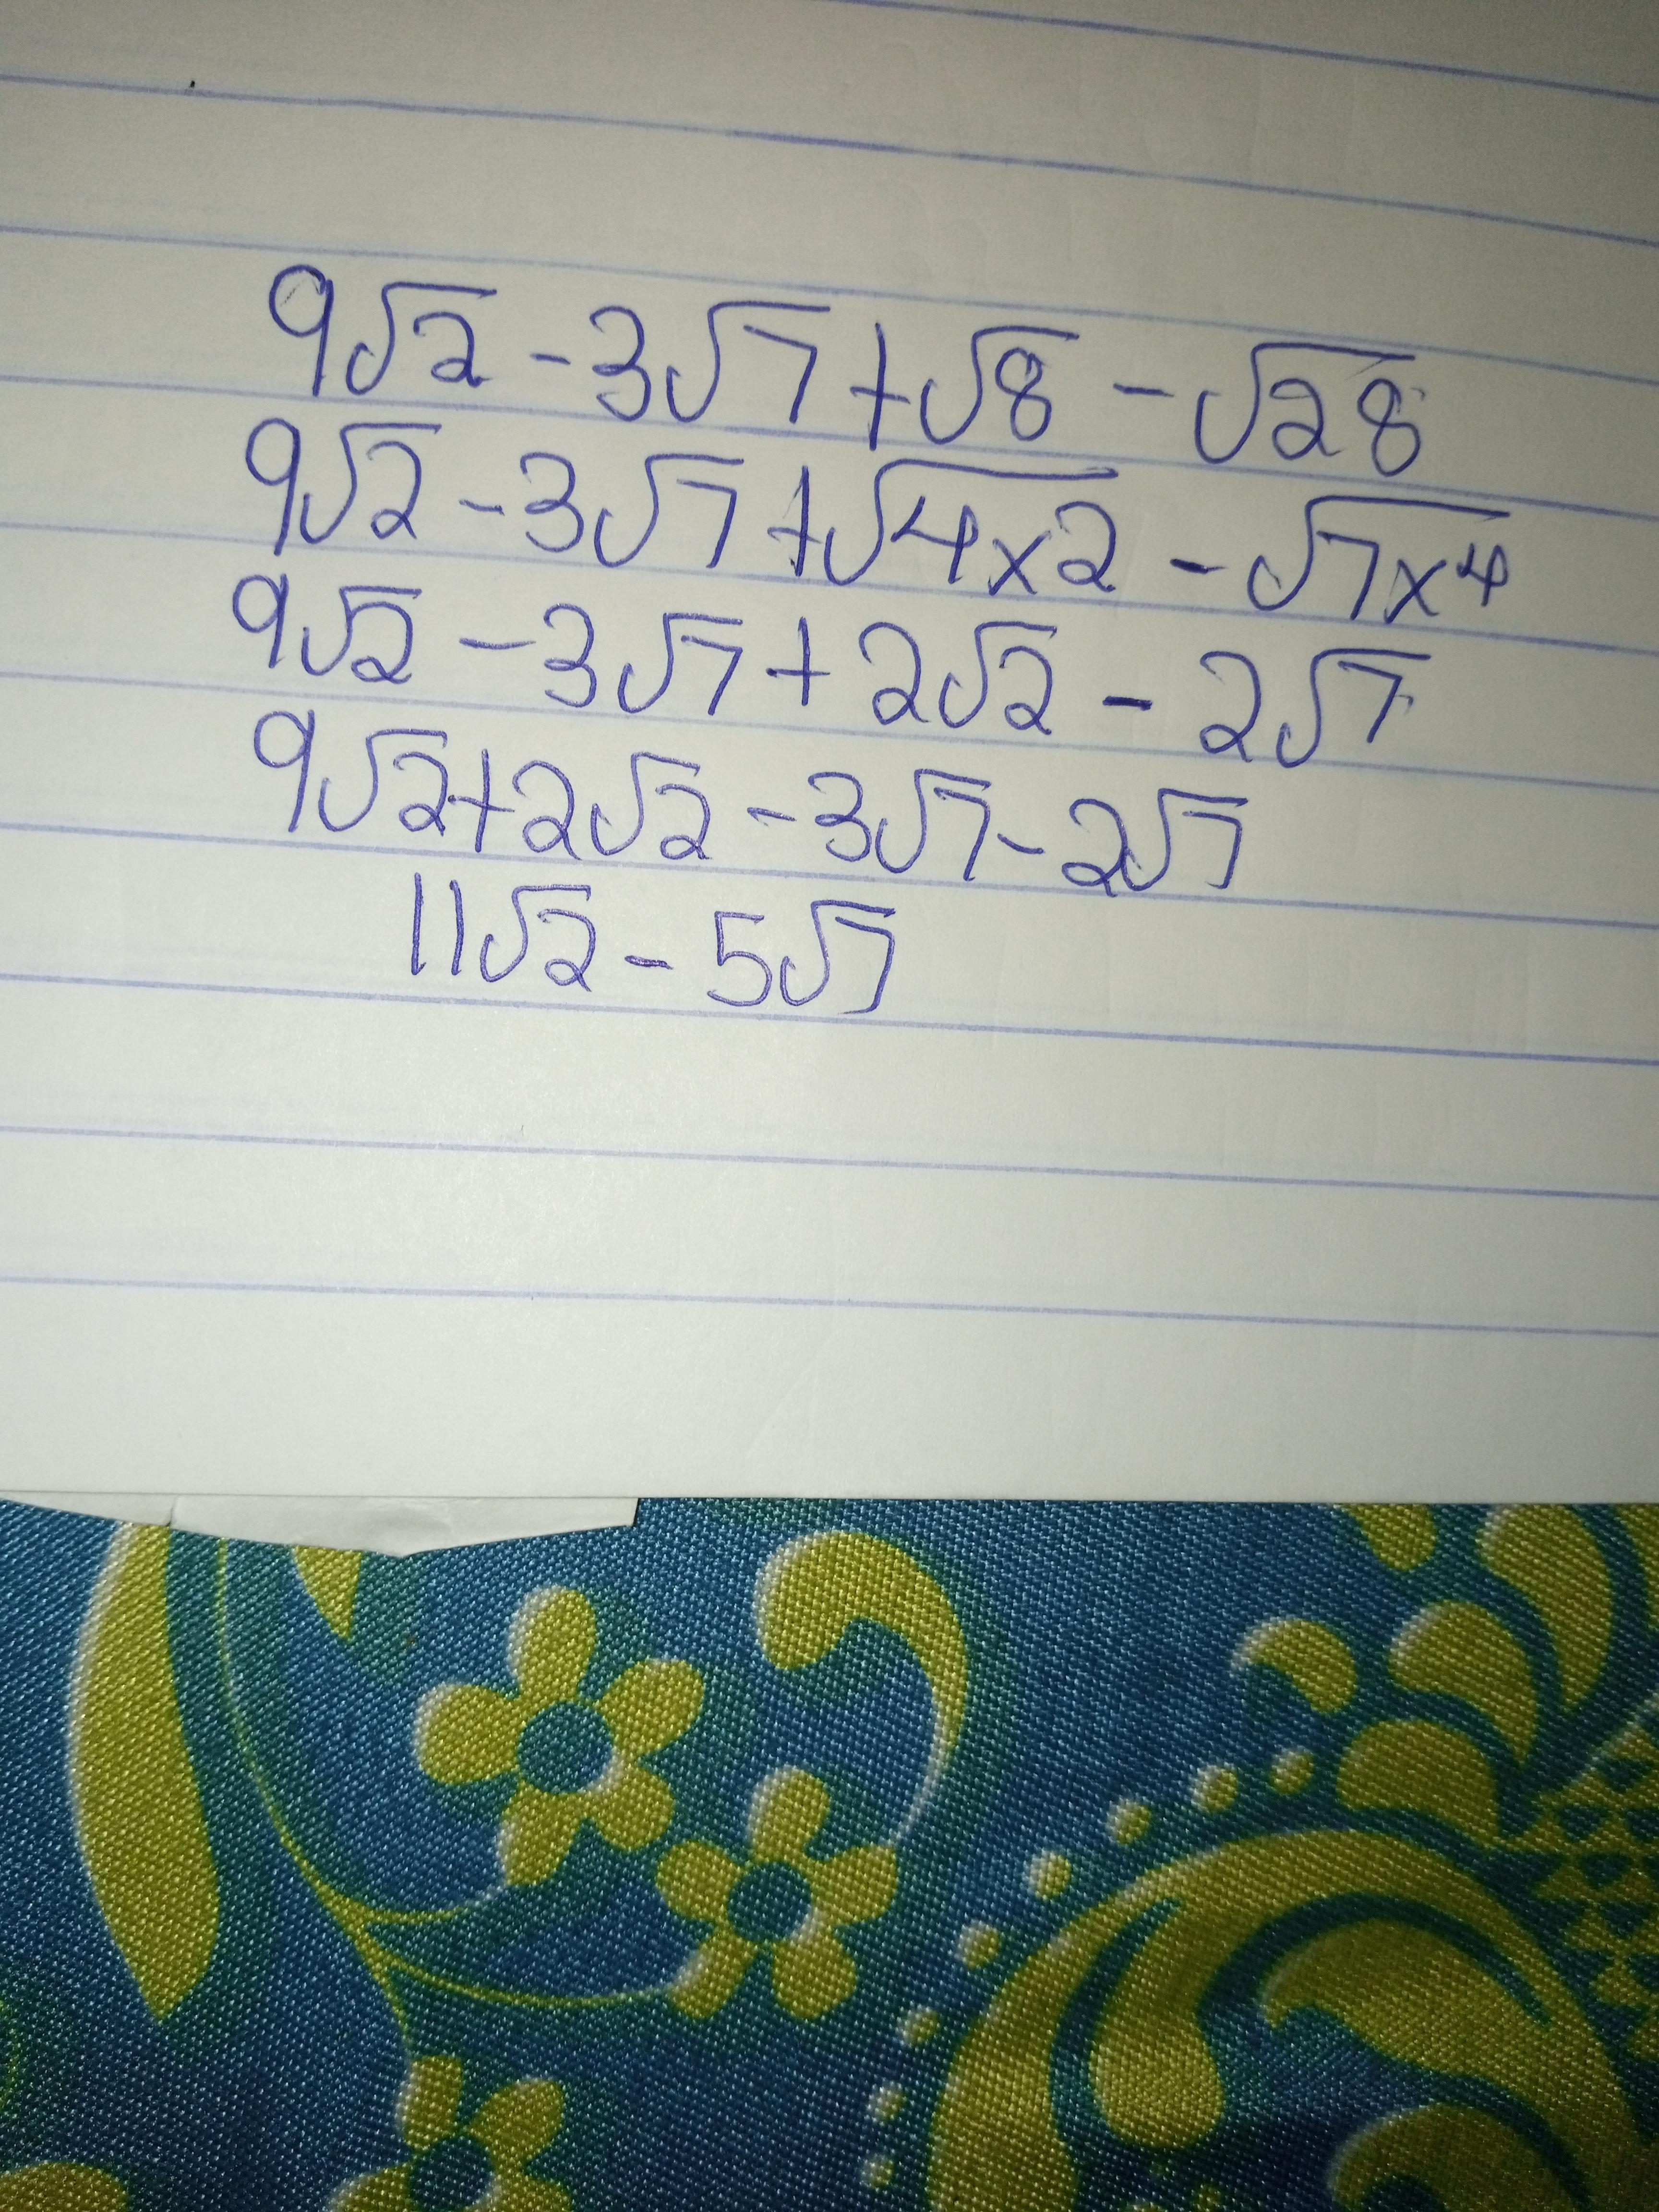 9√2 - 3√7 + √8 - √28
9√2 - 3√7 + √4x2 - √7x4
9√2 - 3√7 + 2√2 - 2√7
9√2 + 2√2 - 3√7 - 2√7
11√2 - 5√7